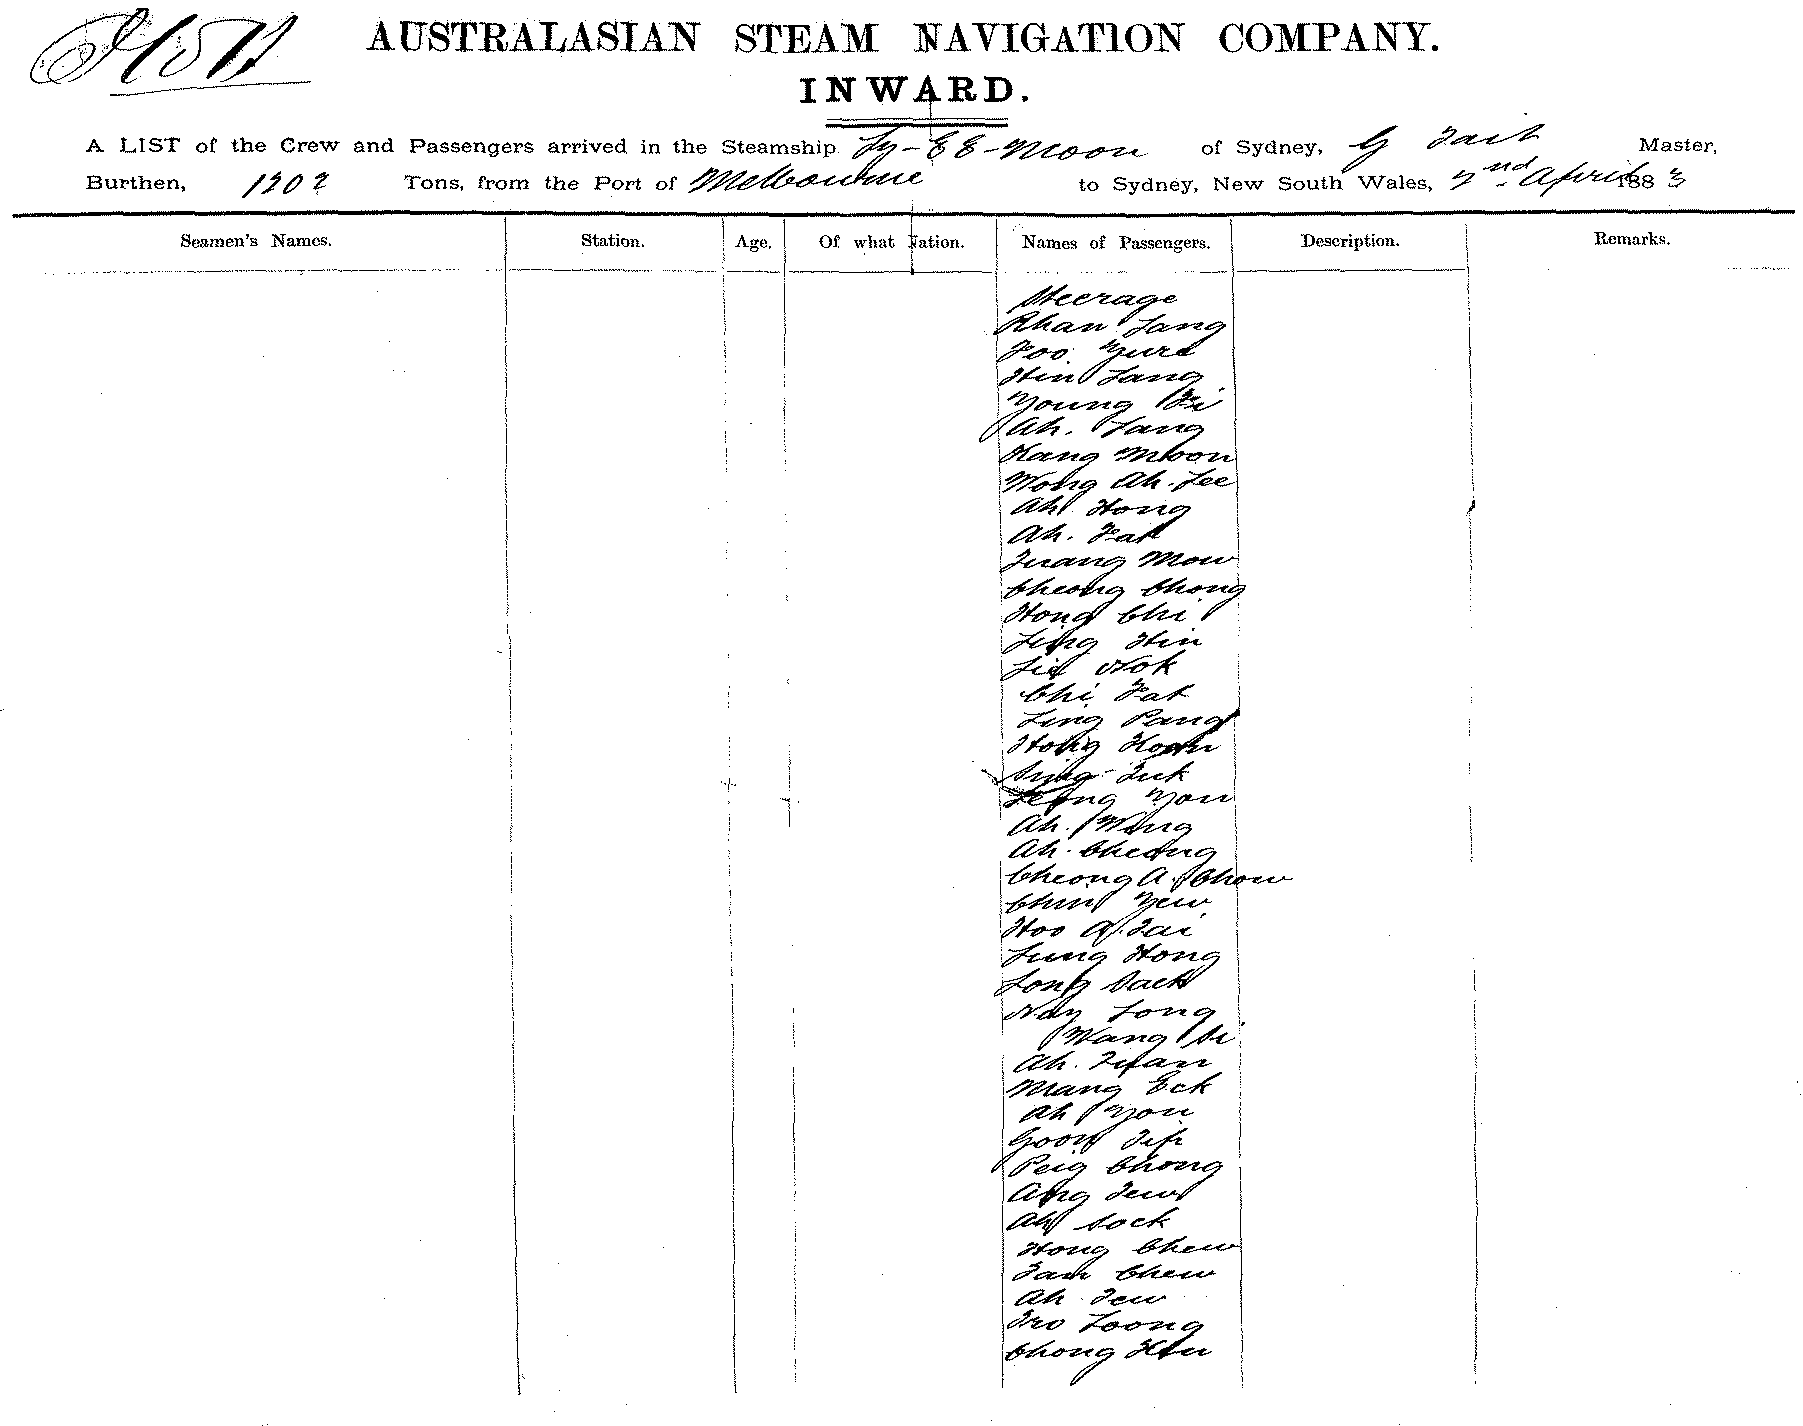 AUSTRALASIAN STEAM NAVIGATION COMPANY.
INWARD.
A LIST of the Crew and Passengers arrived in the Steamship Ly-EE-Moon of Sydney, G Tait Master,
Burthen, 1202 Tons, from the Port of Melbourne to Sydney, New South Wales, 2nd April 1883
Seamen's Names. Station. Age. Of what Nation. Names of Passengers. Description. Remarks.
Steerage
Khan Lang
Foo
Hin Lang
Young Fi
Ah. Lang
Kang Moon
Wong Ah. Lee
Ah Hong
Ah. Fat
Mow
Cheong Chong
Hong Chi
Ling Hin
Nok
Chi Fat
Ling Pang
Hong
Sing Tuk
Leong You
Ah. Wing
Ah. Cheong
Cheong A. Chow
Chin Yew
Hoo A. Tai
Lung Hong
Long Sack
Nay Long
Wang Si
Ah.
Mang Eck
Ah You
Goon
Peig Chong
Ang Tew
Ah Sock
Hong Chew
Tam Chew
Ah Tew
Loong
Chong